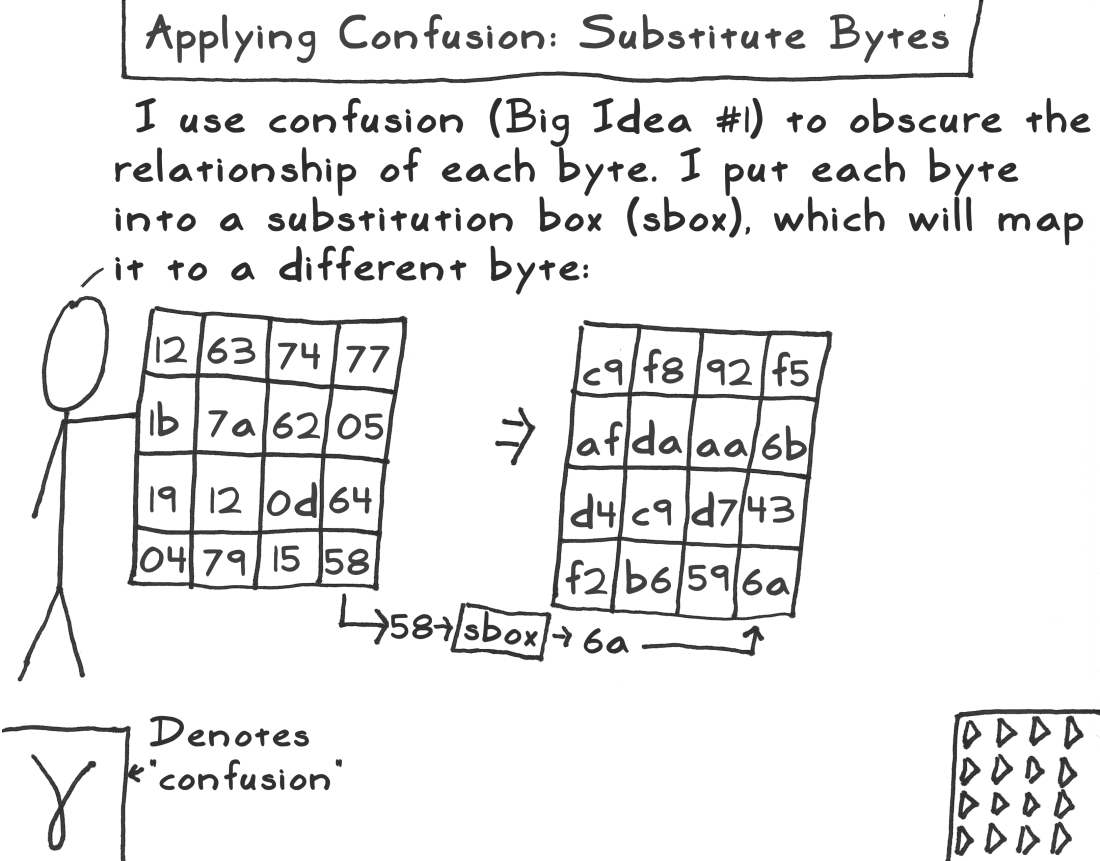 Applying Confusion: Substitute Bytes
I use confusion (Big Idea #1) to obscure the
relationship of each byte. I put each byte
into a substitution box (sbox), which will map
it to a different byte:
12 63 74 77
1b 7a 62 05
19 12 0d 64
04 79 15 58
⇒
c9 f8 92 f5
af da aa 6b
d4 c9 d7 43
f2 b6 59 6a
58→sbox→6a
γ
Denotes
"confusion"